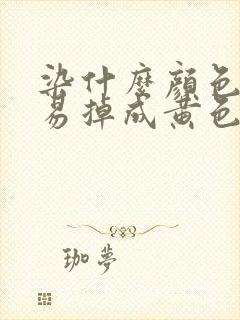 染什麼顏色
易掉成黃色
珈夢